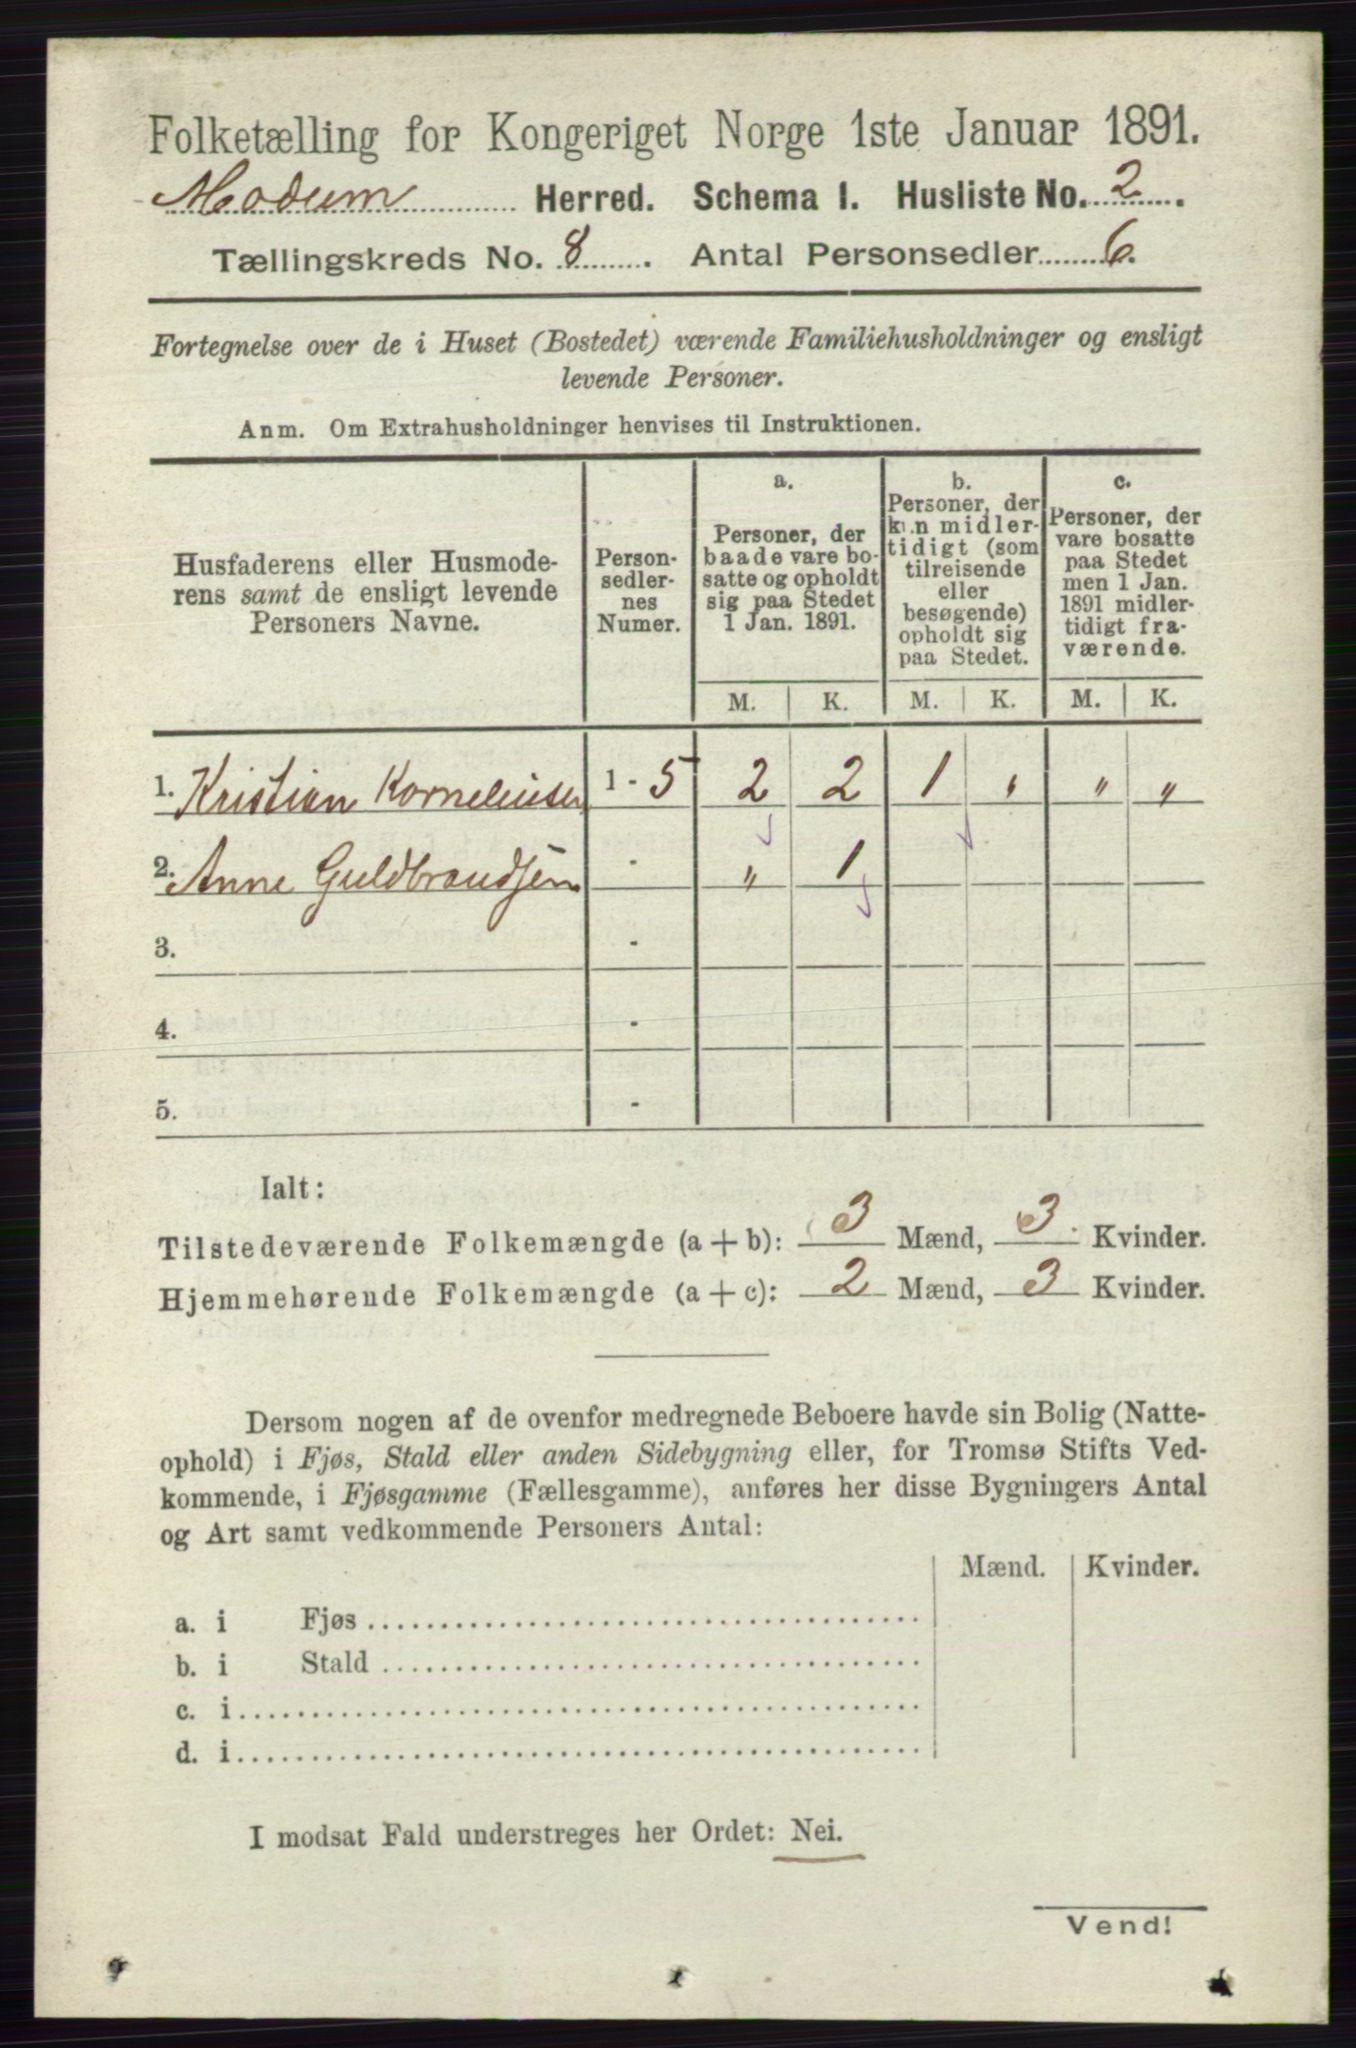 Folketælling for Kongeriget Norge 1ste Januar 1891.
Modum Herred. Schema 1. Husliste No. 2.
Tællingskreds No. 8. Antal Personsedler 6.
Fortegnelse over de i Huset (Bostedet) værende Familiehusholdninger og ensligt
levende Personer.
Anm. Om Extrahusholdninger henvises til Instruktionen.
Husfaderens eller Husmode-
rens samt de ensligt levende
Personers Navne.
Person-
sedler-
nes
Numer.
a.
Personer, der
baade vare bo-
satte og opholdt
sig paa Stedet
1 Jan. 1891.
b.
Personer, der
kun midler-
tidigt (som
tilreisende
eller
besøgende)
opholdt sig
paa Stedet.
c.
Personer, der
vare bosatte
paa Stedet
men 1 Jan.
1891 midler-
tidigt fra-
værende.
M. K. M. K. M. K.
1. Kristian Korneliusen 1 - 5 2 2 1 " " "
2. Anne Guldbrandsen - " 1
3. -
4. -
5. -
Ialt:
Tilstedeværende Folkemængde (a + b): 3 Mænd, 3 Kvinder.
Hjemmehørende Folkemængde (a + c): 2 Mænd, 3 Kvinder.
Dersom nogen af de ovenfor medregnede Beboere havde sin Bolig (Natte-
ophold) i Fjøs, Stald eller anden Sidebygning eller, for Tromsø Stifts Ved-
kommende, i Fjøsgamme (Fællesgamme), anføres her disse Bygningers Antal
og Art samt vedkommende Personers Antal:
Mænd. Kvinder.
a. i Fjøs
b. i Stald
c. i
d. i
I modsat Fald understreges her Ordet: Nei.
Vend!